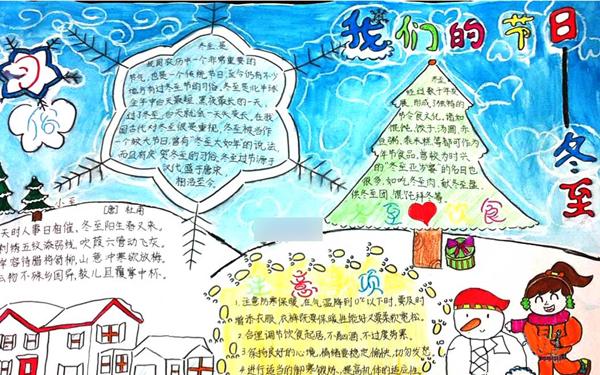 我们的节日
冬至
冬至是
我国农历中一个非常重要的
节气,也是一个传统节日,至今仍有不少
地方有过冬至节的习俗。冬至是北半球
全年中白天最短、黑夜最长的一天,
过了冬至,白天就会一天天变长。在我
国古代对冬至很是重视,冬至被当作
一个较大节日,曾有“冬至大如年”的说法,
而且有庆贺冬至的习俗。冬至过节源于
汉代,盛于唐宋,
相沿至今。
冬至
经过数千年发
展,形成了独特的
节令食文化。诸如
馄饨、饺子、汤圆、赤
豆粥、黍米糕等都可作为
年节食品。曾较为时兴
的“冬至亚岁宴”的名目也
很多,如吃冬至肉、献冬至盘、
供冬至团、馄饨拜冬等。
至 饮食
小至
[唐] 杜甫
天时人事日相催,冬至阳生春又来。
刺绣五纹添弱线,吹葭六管动飞灰。
岸容待腊将舒柳,山意冲寒欲放梅。
云物不殊乡国异,教儿且覆掌中杯。
注意事项
1.注意防寒保暖。在气温降到0℃以下时,要及时
增添衣服,衣裤既要保暖性能好又要柔软宽松。
2.合理调节饮食起居,不酗酒、不过度劳累。
3.保持良好的心境,情绪要稳定、愉快,切勿发怒
4.进行适当的御寒锻炼,提高机体的适应性